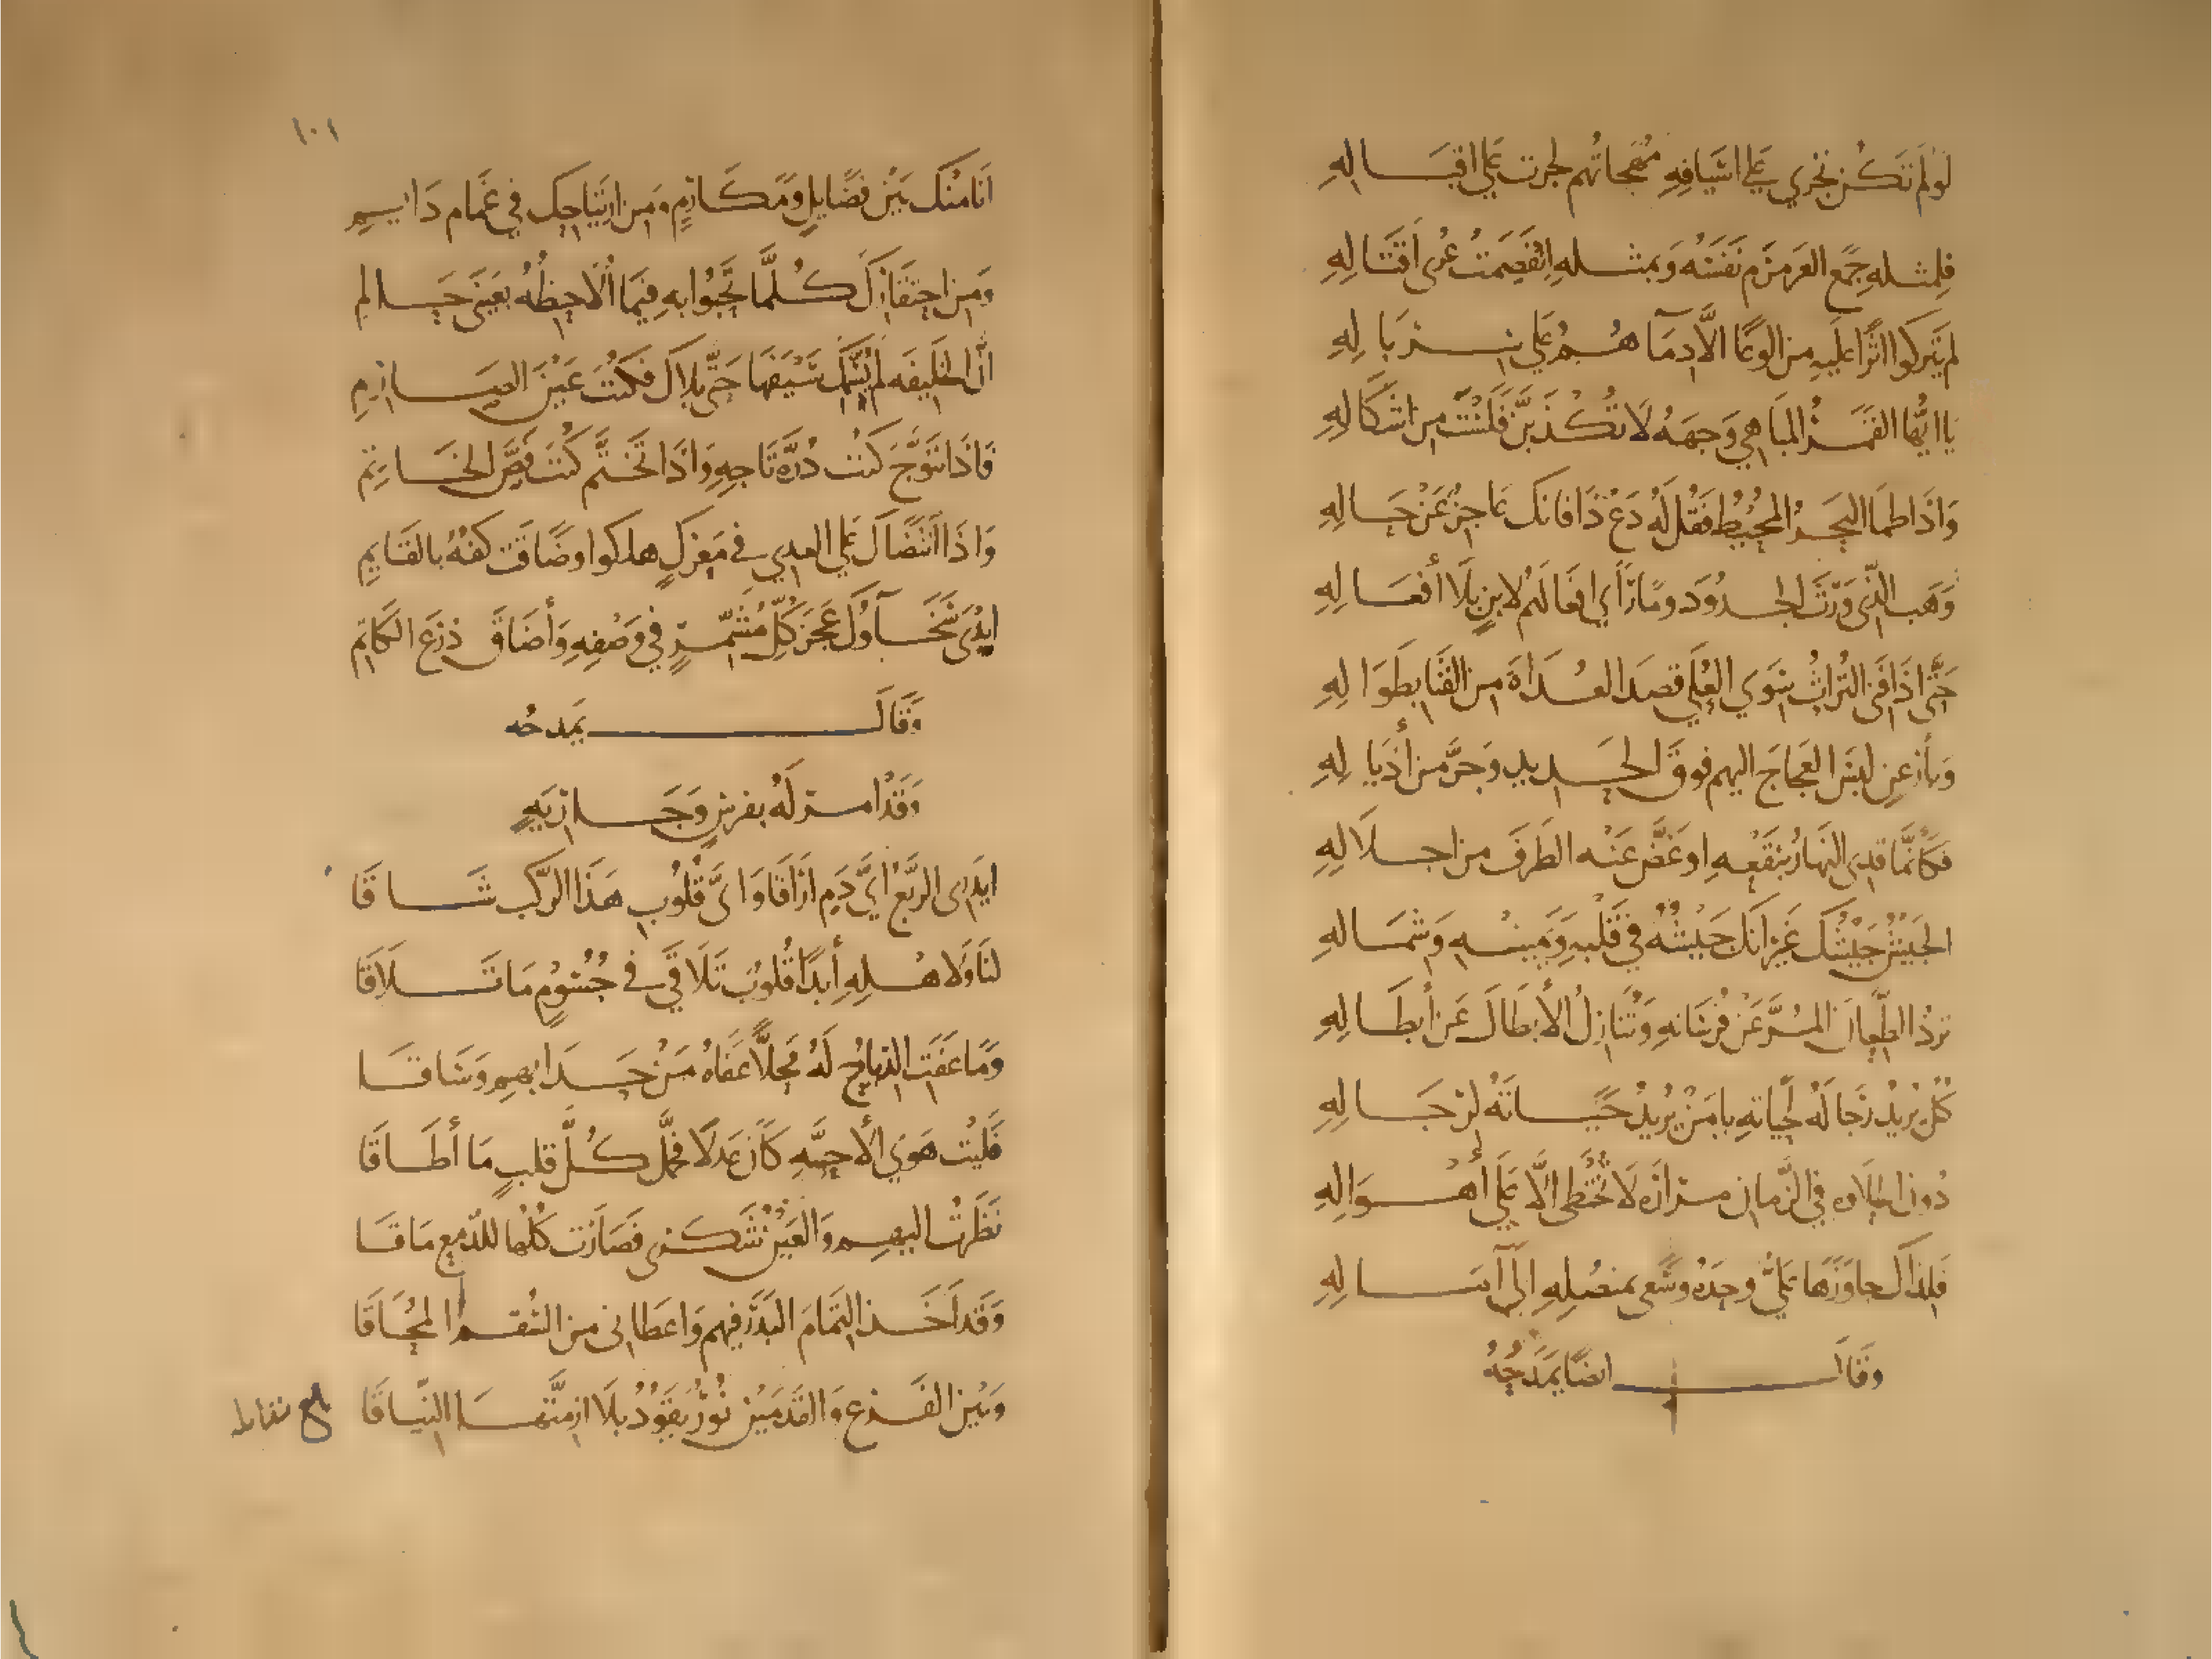 لَوْ لَمْ تَكُنْ تَجري عَلى اسْيَافِهِ مُهَجَاتُهم لجرت عَلى اقبَـــالِهِ
فلِمثــلهِ جَمَع العَرَمرَم نَفسَهُ وَبمثــلهِ اِنْفَصَمَتْ عُرى أقتَالِهِ
لم يَتركوا اثَرًا عليهِ من الوَغَا الّا دِمَآهُــمُ عَلى سِــربَالِهِ
يَا ايُّها القَمَــرُ المبَاهي وَجهَهُ لَا تُكْذَبَنَّ فَلَسْتَ من اشْكَالِهِ
وَاذَا طمَا البَحــرُ المحُيْطُ فَقُل لَهُ دَعْ ذَا فانك عَاجِزٌ عَنْ حَــالِهِ
وَهَبَ الذّى وَرَثَ الجــدُوَد ومَا رَأى افعَالَهُم لابنٍ بِلَا أفعَــالِهِ
حَتّى اذَا فَنى التُّراثُ سِوَي العُلى قصَدَ العُــدَاةَ مِن القَنَا بطِوَالِهِ
وَبأرْعَنٍ لبسَ العَجاجَ اليهم فوقَ الحَــديدِ وَجَرَّ من أذيَالِهِ
فكَأنمَّا قدِىَ النَّهارُ بنَقْعِــهِ اوغَضَّ عَنْــه الطَرفَ من اجــلَالِهِ
الجَيْشُ جَيْشُكَ غَيرَ انكَ جَيْشُهُ في قَلْبهِ وَيَمينــهِ وَشمَــالهِ
تَرِدُ الطِّعانَ المُــرَّ عَنْ فُرْسَانهِ وَتُنَازِلُ الأبطَالَ عَن أبطَــالِهِ
كُلٌّ يُريْدُ رجَالَهُ لحَيَاتهِ يا مَنْ يُريْدُ حَيَــاتَهُ لِرجَــالِهِ
دُونَ الحَلَاوه في الزَّمانِ مــرَارَه لَا تُخْتَطى الّا عَلَى أهْــوَالِهِ
فَلِذَاكَ جاوَزَهَا عَلىٌّ وحدَهُ وسَعى بمنصُلِهِ الى آمَــالِهِ
وقَالَ ايضًا يَمدَحُهُ
١٠١
اَنَا مِنْكَ بَيْنَ فضَايلٍ ومَكَــارمٍ ومَن ارْتيَاحِكَ في غَمَام دَايــمِ
وَمِن احتقَارِكَ كُلّمَا تحَبُوا بهِ فِيْمَا اُلَاحِظُهُ بعَيْنَى حَــالمِ
انَّ الخَليفَه لم يُسَمّكَ سَيْفَهَا حَتّى بلَاكَ فكنْتَ عَيْنَ الصَــارِمِ
فَاذَا تتَوَّجَ كنْتَ دُرَّةَ تَاجِهِ وَاذَا تَخَتَّم كنْتَ فَصَّ الخَــاتِمِ
وَاذَا انتضَاكَ عَلى العِدي في مَعْركٍ هلكوا وضَاقَتْ كفّهُ بالقَايمِ
ابْدَى سَخَــآوكَ عَجْزَ كُلِّ مُشَمِّــرٍ في وَصْفِهِ وَأضَاقَ ذرْعَ الكَاتِم
وَقَالَ يَمدحُه
وَقَدْ امــر لَهُ بفرسٍ وَجَــاريَهٍ
ايَدرِى الرَّبْعُ ايَّ دَمٍ ارَاقَا وَاىَّ قُلُوبِ هَذَا الرَّكبِ شَــاقَا
لنَا وَلاهْــلِهِ أبَدًا قُلُوبٌ تَلَاقَي في جُسُومٍ مَا تَــلَاقَا
وَمَا عَفَتِ الرّيَاحُ لَهُ مَحلًّا عَفَاهُ مَنْ حَــدَا بِهِم وَسَاقَــا
فَليْتَ هَوَي الأحِبّهِ كَانَ عَدلًا فحَمَّلَ كُلَّ قلبٍ مَا أطَــاقَا
نَظَرْتُ اليهِــم وَالعَيْنُ شَكــرى فَصَارَت كُلُّها للدّمعِ مَاقَــا
وَقَد اَخَــذ التّمَامَ البَدَرُ فيهم وَاعطَانى من السُّقــمِ المُحَاقَا
وَبَيْنَ الفَــرْعِ وَالقَدَمَيْنِ نُورٌ يَقوْدُ بلَا ازِمَّتهَــا النّيــاقَا
بلغ مقابله